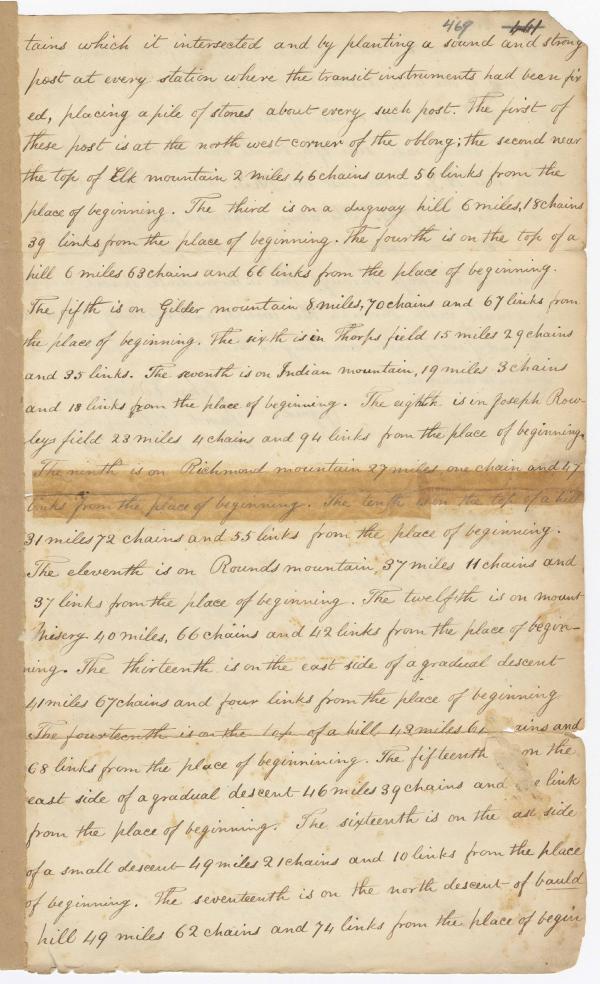 469 461
tains which it intersected and by planting a sound and strong
post at every station where the transit instruments had been fix
ed, placing a pile of stones about every such post. The first of
these post is at the north west corner of the oblong; the second near
the top of Elk mountain 2 miles 46 chains and 56 links from the
place of beginning. The third is on a dugway hill 6 miles, 18 chains
39 links from the place of beginning. The fourth is on the top of a
hill 6 miles 63 chains and 66 links from the place of beginning.
The fifth is on Gilder mountain 8 miles, 70 chains and 67 links from
the place of beginning. The sixth is in Thorps field 15 miles 29 chains
and 35 links. The seventh is on Indian mountain, 19 miles 3 chains
and 18 links from the place of beginning. The eighth is in Joseph Row-
leys field 23 miles 4 chains and 94 links from the place of beginning.
The ninth is on Richmond mountain 27 miles one chain and 47
links from the place of beginning. The tenth is on the top of a hill
31 miles 72 chains and 55 links from the place of beginning.
The eleventh is on Rounds mountain, 37 miles 11 chains and
37 links from the place of beginning. The twelfth is on mount
Misery 40 miles, 66 chains and 42 links from the place of begin-
ning. The thirteenth is on the east side of a gradual descent
41 miles 67 chains and four links from the place of beginning
The fourteenth is on the top of a hill, 43 miles 61 ains and
68 links from the place of beginnining. The fifteenth on the
east side of a gradual descent 46 miles 39 chains and e link
from the place of beginning. The sixteenth is on the ast side
of a small descent 49 miles 21 chains and 10 links from the place
of beginning. The seventeenth is on the north descent of bauld
hill 49 miles 62 chains and 74 links from the place of begin